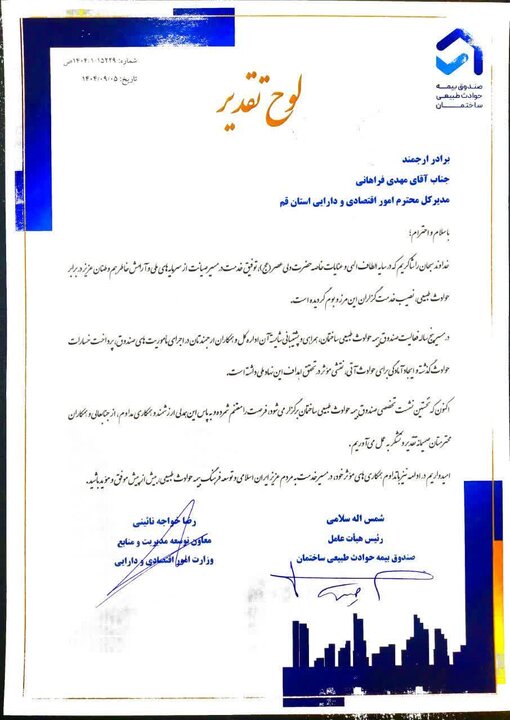 شماره: ۱۴۰۴/۱۰۱۵۲۲۹ص
تاریخ: ۱۴۰۴/۰۹/۰۵
صندوق بیمه
حوادث طبیعی
ساختمان
لوح تقدیر
برادر ارجمند
جناب آقای مهدی فراهانی
مدیرکل محترم امور اقتصادی و دارایی استان قم
با سلام و احترام؛
خداوند سبحان را شاکریم که در سایه الطاف الهی و عنایات خاصه حضرت ولی عصر (عج)، توفیق خدمت در مسیر صیانت از سرمایه‌های ملی و آرامش خاطر هم وطنان عزیز در برابر
حوادث طبیعی، نصیب خدمت گزاران این مرز و بوم گردیده است.
در مسیر پنج ساله فعالیت صندوق بیمه حوادث طبیعی ساختمان، همراهی و پشتیبانی شایسته آن اداره کل و همکاران ارجمندتان در اجرای مأموریت‌های صندوق، پرداخت خسارات
حوادث گذشته و ایجاد آمادگی برای حوادث آتی، نقشی مؤثر در تحقق اهداف این نهاد ملی داشته است.
اکنون که نخستین نشست تخصصی صندوق بیمه حوادث طبیعی ساختمان برگزار می‌شود، فرصت را مغتنم شمرده و به پاس این همدلی ارزشمند و همکاری مداوم، از جنابعالی و همکاران
محترمتان صمیمانه تقدیر و تشکر به عمل می‌آوریم.
امیدواریم در ادامه نیز با تداوم همکاری‌های مؤثر خود، در مسیر خدمت به مردم عزیز ایران اسلامی و توسعه فرهنگ بیمه حوادث طبیعی، بیش از پیش موفق و مؤید باشید.
شمس اله سلامی
رئیس هیأت عامل
صندوق بیمه حوادث طبیعی ساختمان
رضا خواجه نائینی
معاون توسعه مدیریت و منابع
وزارت امور اقتصادی و دارایی